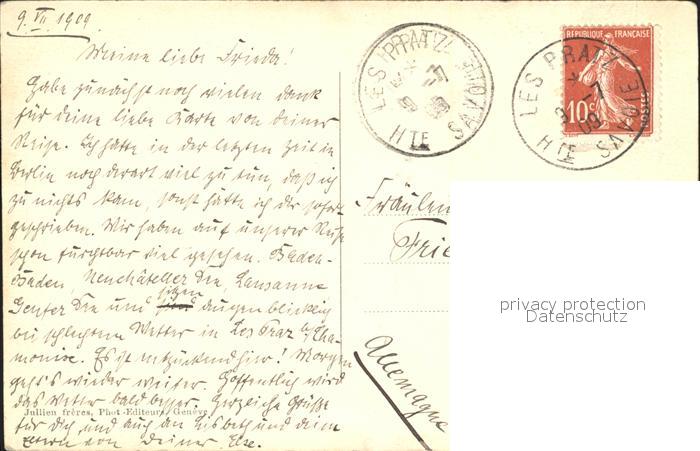 9. VII. 1909.
Meine liebe Frieda!
Habe zunächst noch vielen Dank
für deine liebe Karte von deiner
Reise. Ich hatte in der letzten Zeit in
Berlin noch derart viel zu tun, daß ich
zu nichts kam, sonst hätte ich dir sofort
geschrieben. Wir haben auf unserer Reise
schon furchtbar viel gesehen. Baden-
Baden, Neuchâteller See, Lausanne
Genfer See und sitzen augenblicklich
bei schlechtem Wetter in Les Praz b/ Cha-
monix. Es ist entzückend hier! Morgen
geht's wieder weiter. Hoffentlich wird
das Wetter bald besser. Herzliche Grüße
Jullien frères, Phot-Editeurs, Genève
für dich und auch an Lisbeth und deine
Eltern von Deiner Else.
LES PRATZ
HTE SAVOIE
REPUBLIQUE FRANÇAISE
10c
POSTES
LES PRATZ
9 - 7
09
HTE SAVOIE
Fräulein
Frie
Allemagne
privacy protection
Datenschutz